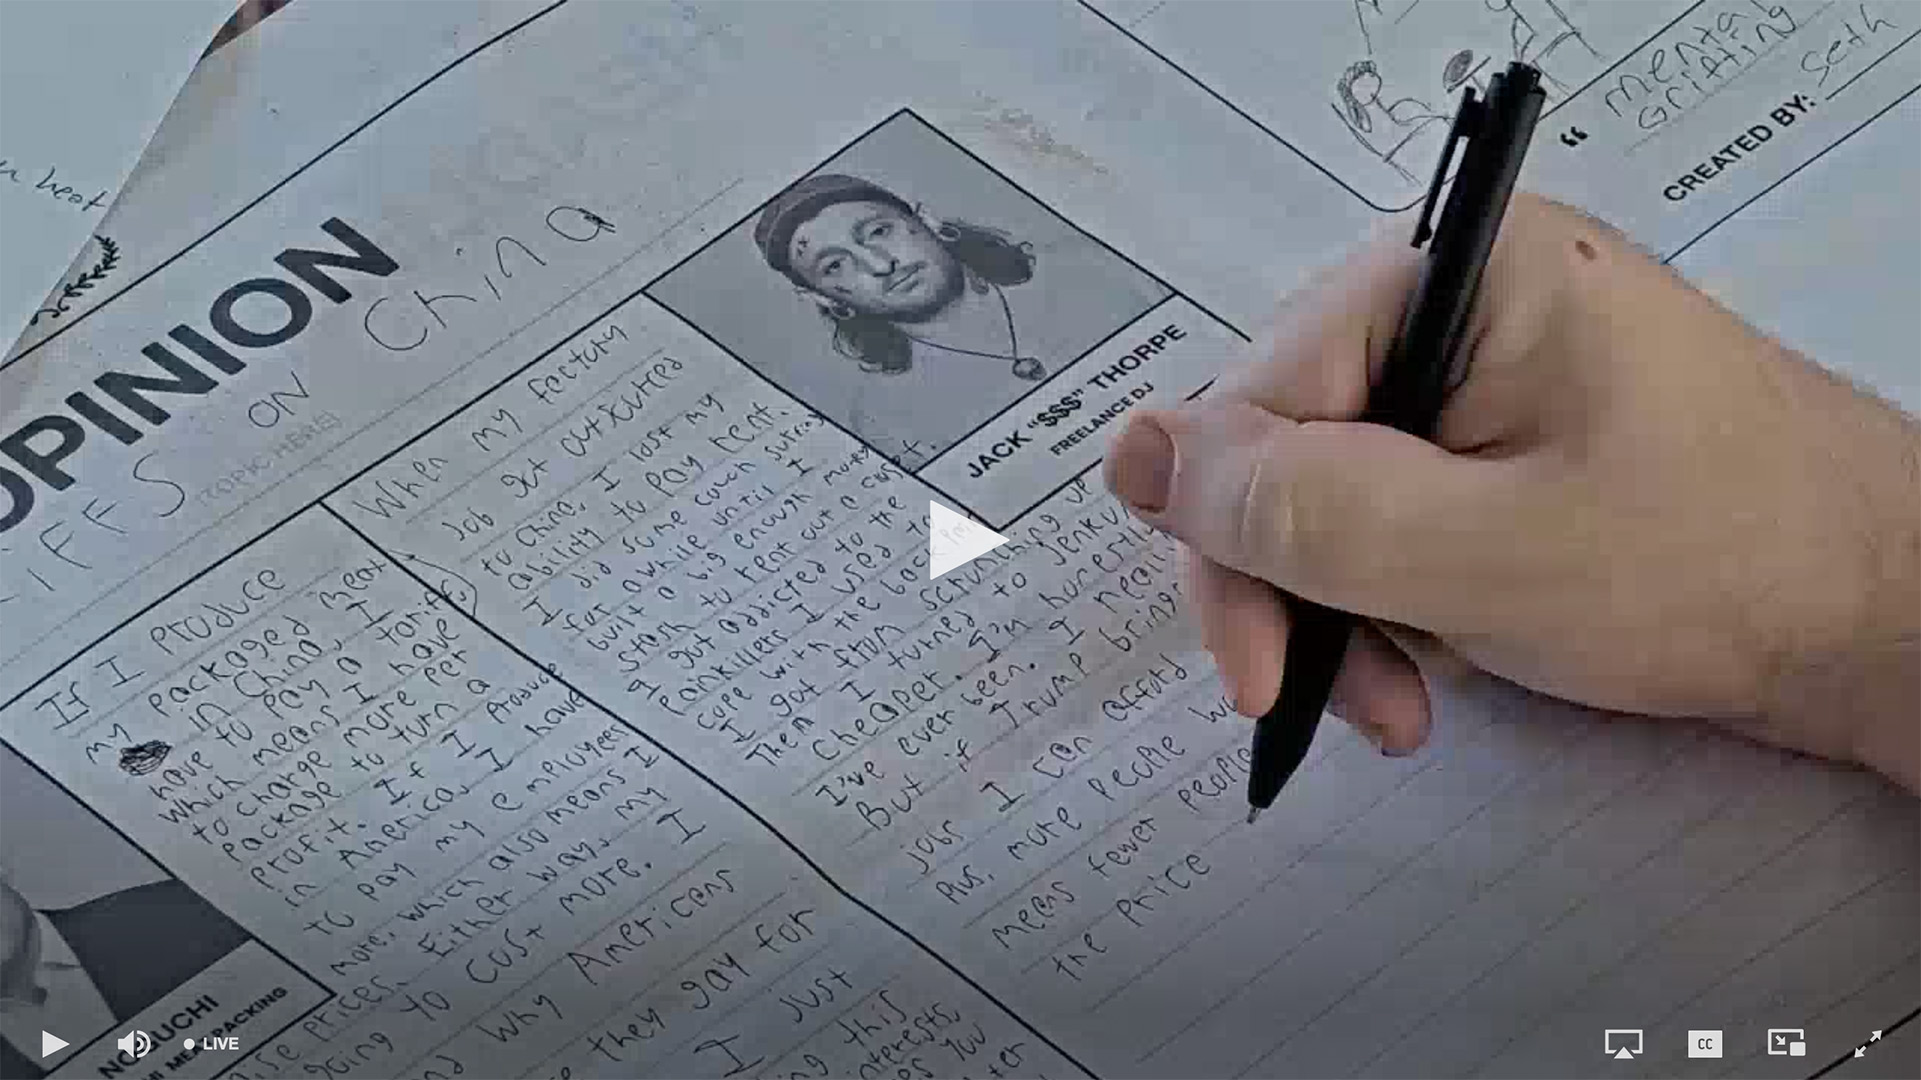 heat
OPINION
ON China
TOPIC HERE
If I produce
my packaged meat
in China, I
have to pay a tariff,
which means I have
to charge more per
package to turn a
profit. If I produce
in America, I have
to pay my employees
more, which also means I
prices. Either way, my
going to cost more. I
why Americans
they gay for
I just
this
interests,
you
NOGUCHI
MEATPACKING
When my factory
job got outsourced
to China, I lost my
ability to pay rent.
I did some couch surfing
for awhile until I
built a big enough money
stash to rent out a carpet.
I got addicted to the
painkillers I used to
cope with the back pain
I got from scrunching up
Then I turned to
cheaper. I'm honestly
I've ever been. I really
But if Trump brings
jobs I can afford
Plus, more people
means fewer people
the price
JACK "$$$" THORPE
FREELANCE DJ
"mental
Grifting
CREATED BY: Seth
LIVE
CC